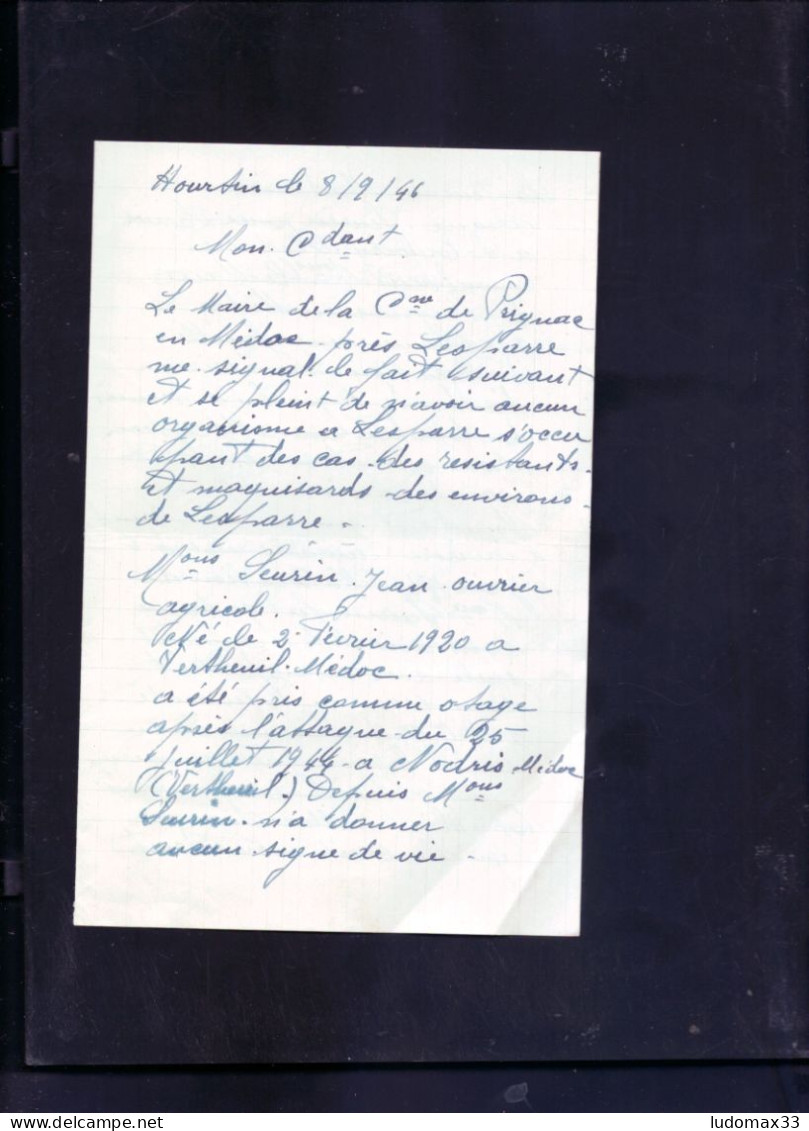 Hourtin le 8/9/46
Mon. Cdant.
Le Maire de la Cne de Prignac
en Médoc près Lesparre
me signal le fait suivant
et se pleint de n'avoir aucun
organisme a Lesparre s'occu
pant des cas des resistants.
et maquisards des environs.
de Lesparre.
Mons Seurin Jean ouvrier
agricole.
Né le 2 Février 1920 a
Vertheuil-Médoc.
a été pris comme otage
après l'attaque du 25
juillet 1944 a Nodris Médoc
(Vertheuil.) Depuis Mons
Seurin n'a donner
aucun signe de vie.
ludomax33